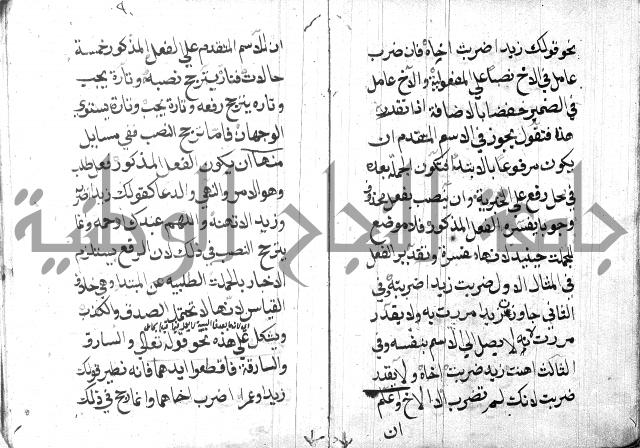 نحو قولك زيدا ضربت اخاه فان ضرب
عامل في الاخ نصبا على المفعولية والاخ عامل
في الضمير خفضا بالاضافة اذا تقرر
هذا فنقول يجوز في الاسم المتقدم ان
يكون مرفوعا بالابتدا فتكون الجملة بعده
في محل رفع على الخبرية وان ينصب بفعل محذوف
وجوبا يفسره الفعل المذكور فلا موضع
للجملة حينيذ لانها مفسرة وتقدير الفعل
في المثال الاول ضربت زيدا ضربته وفي
الثاني جاوزت زيدا مررت به ولا يقدر
مررت لانه لا يصل الى الاسم بنفسه وفي
الثالث اهنت زيدا ضربت اخاه ولا يقدر
ضربت لانك لم تضرب الا الاخ واعلم
ان
ان للاسم المتقدم على الفعل المذكور خمسة
حالات فتارة يترجح نصبه وتارة يجب
وتاره يترجح رفعه وتارة يجب وتارة يستوي
الوجهان فاما ترجح النصب ففي مسايل
منها ان يكون الفعل المذكور فعل طلب
وهو الامر والنهي والدعا كقولك زيدا اضربه
وزيدا لا تهنه واللهم عبدك ارحمه وانما
يترجح النصب في ذلك لان الرفع يستلزم
الاخبار بالجملة الطلبية عن المبتدا وهو خلاف
القياس لانها لا تحتمل الصدق والكذب
ويشكل على هذه نحو قوله تعالى والسارق
والسارقة فاقطعوا ايديهما فانه نظير قولك
زيدا وعمرا اضرب اخاهما وانما رجح في ذلك
جامعة النجاح الوطنية